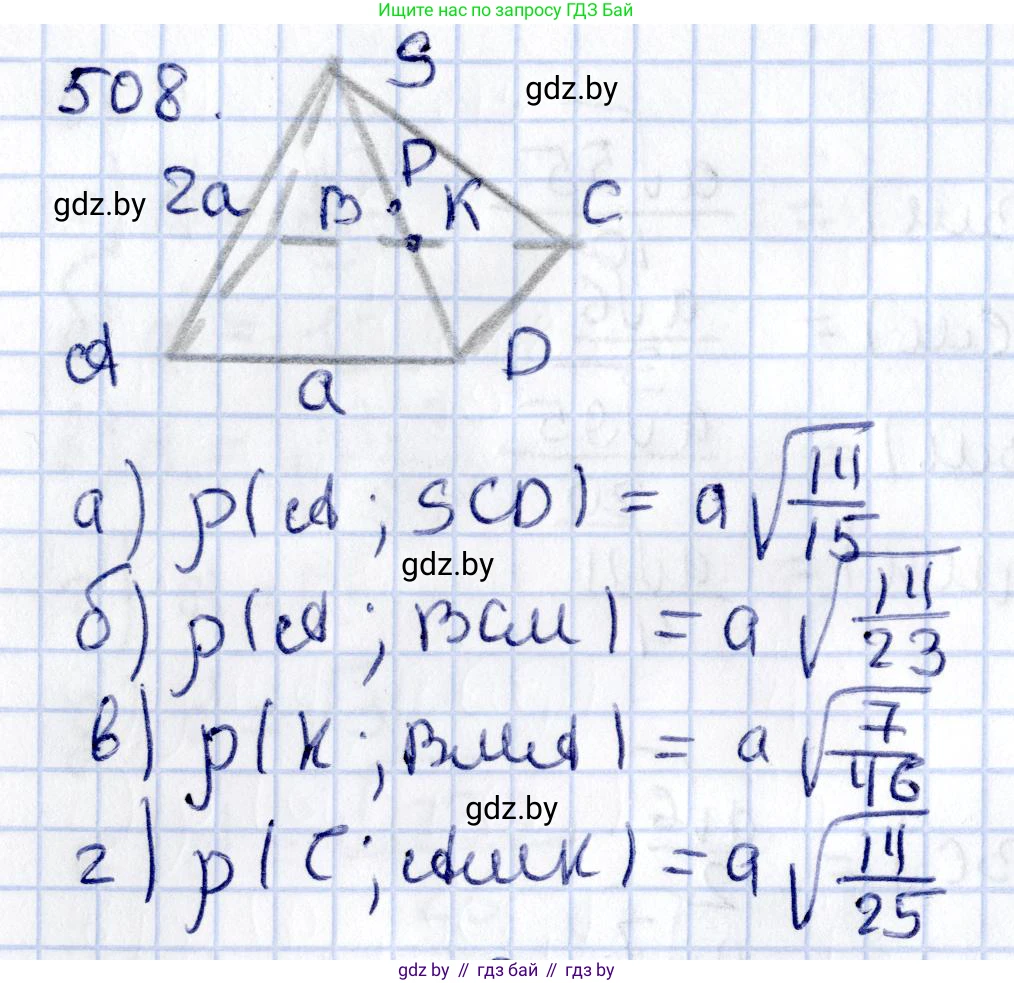 Ищите нас по запросу ГДЗ Бай
508.
S
gdz.by
P
gdz.by
2a
B
K
C
A
D
a
а) ρ(A; SCD) = a√(14/15)
gdz.by
б) ρ(A; BCM) = a√(14/23)
в) ρ(K; BMA) = a√(7/46)
gdz.by
г) ρ(C; AMK) = a√(14/25)
gdz.by // гдз бай // гдз by